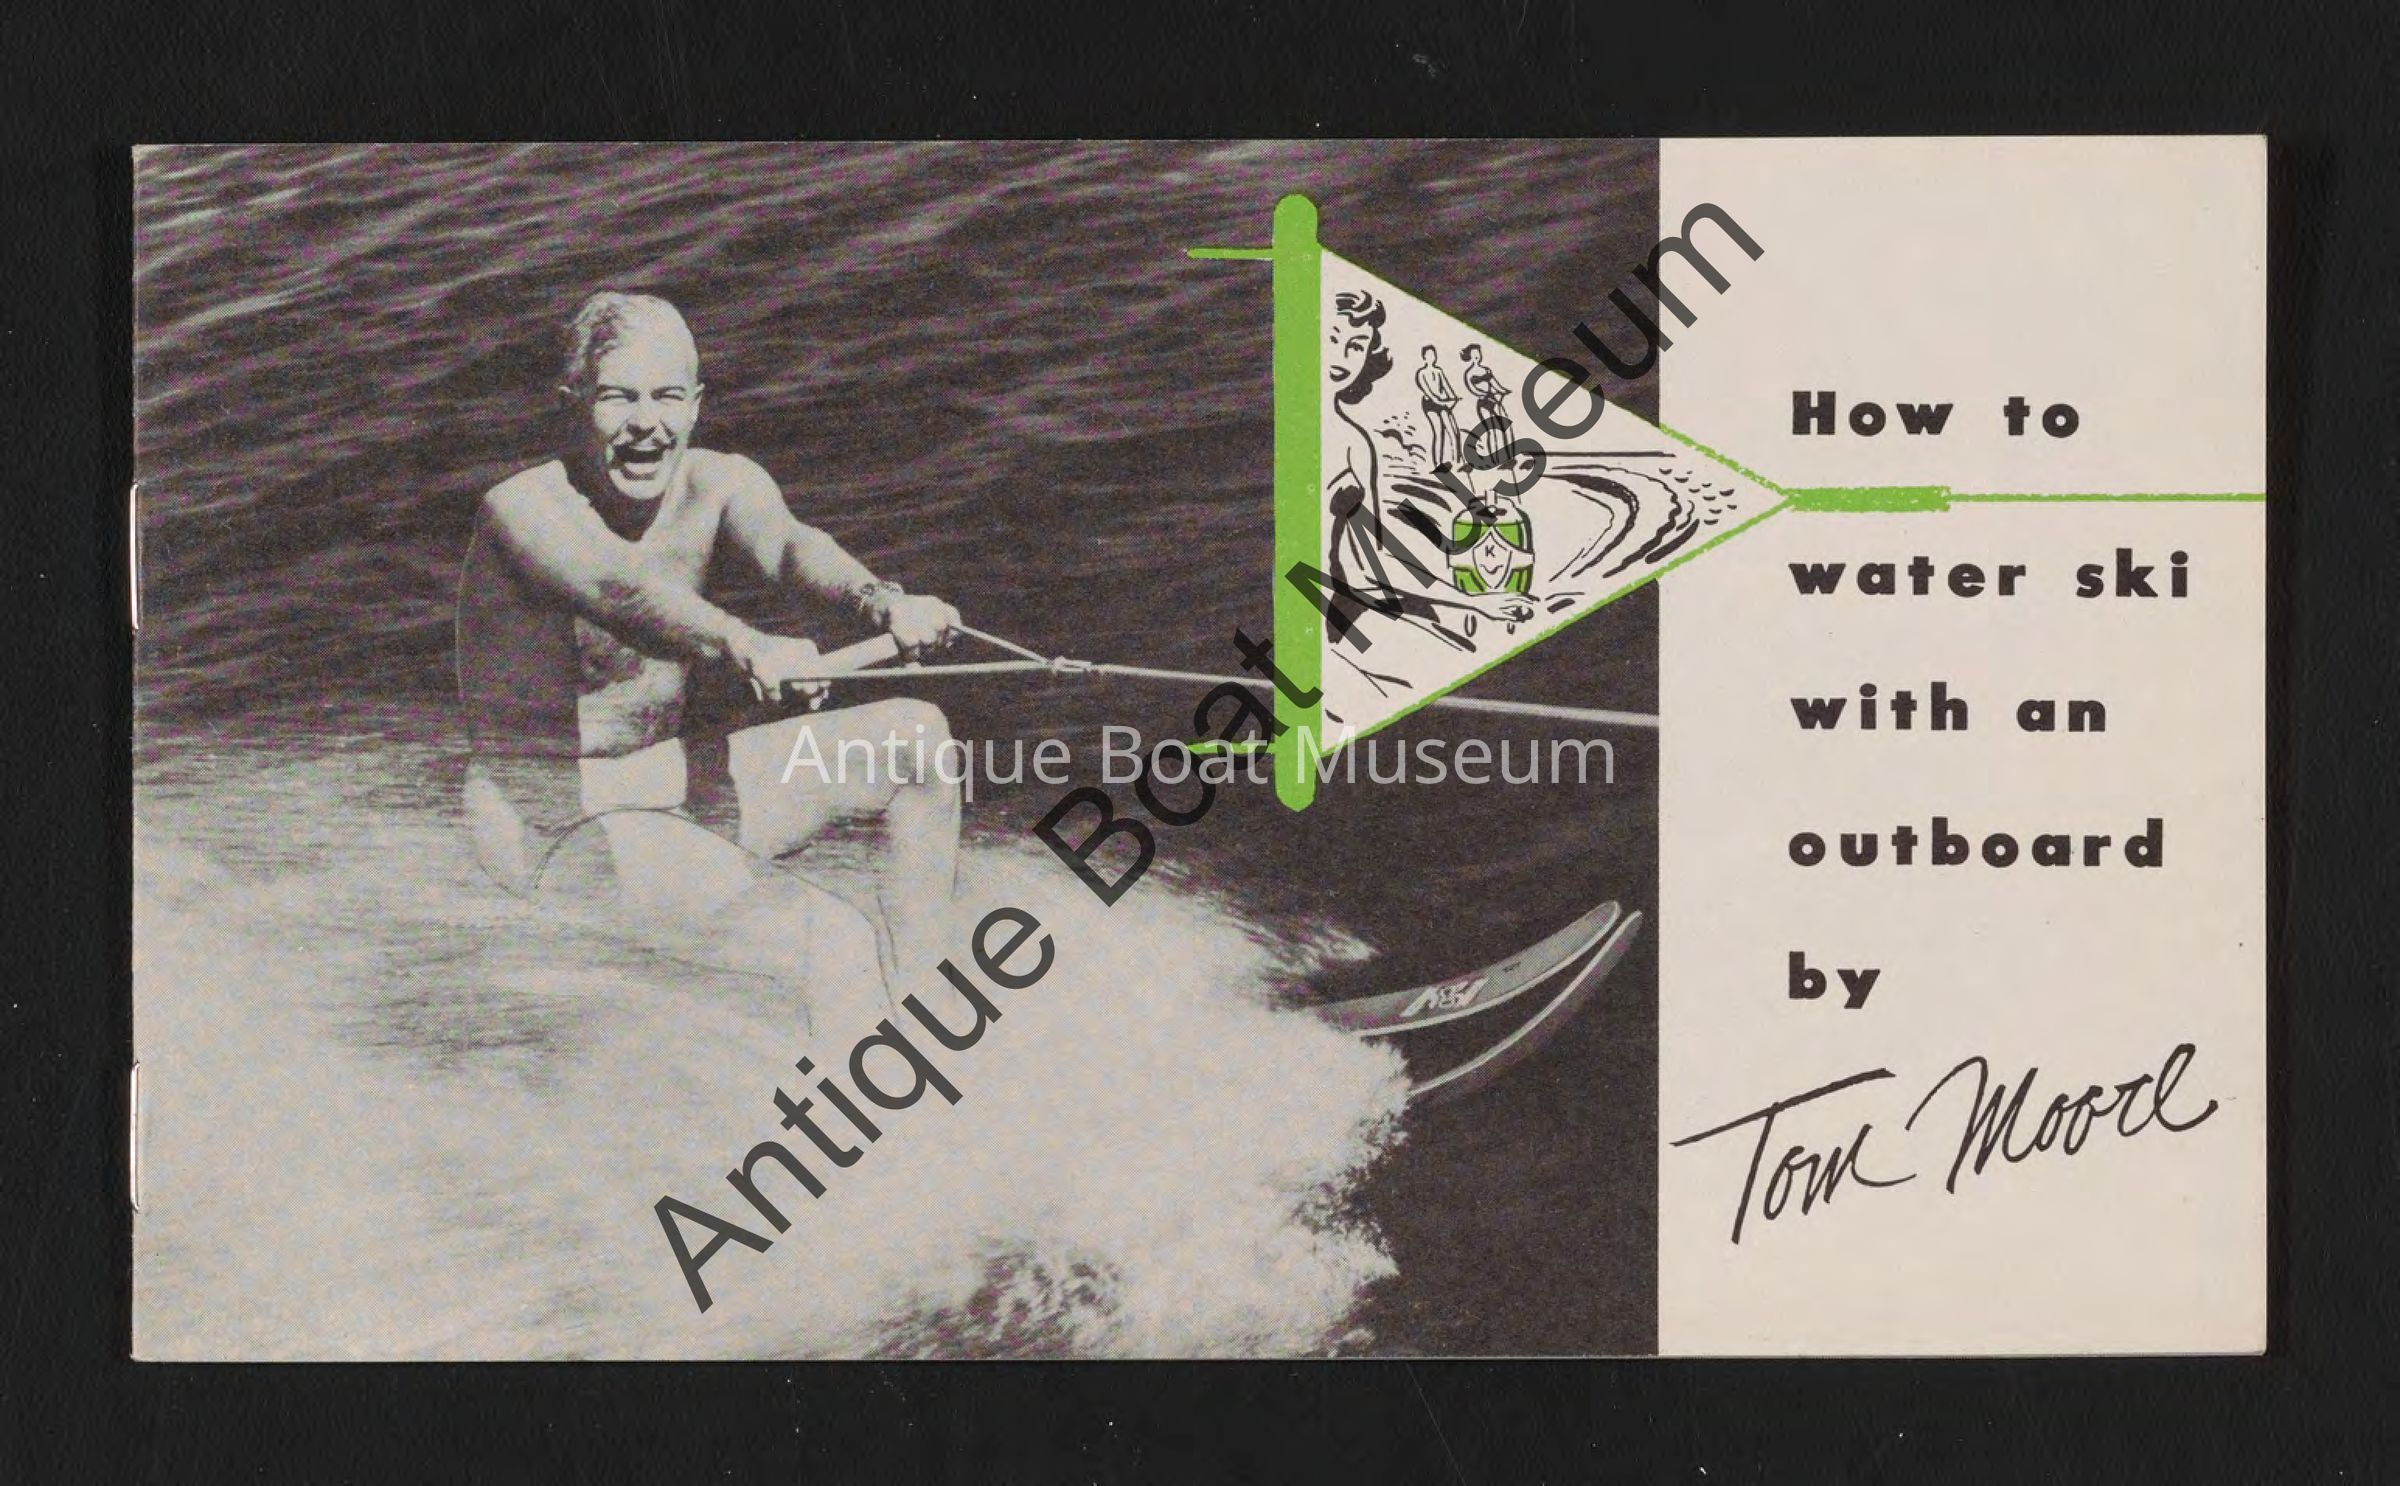 How to
water ski
with an
outboard
by
Tom Moore
K
Antique Boat Museum
Antique Boat Museum